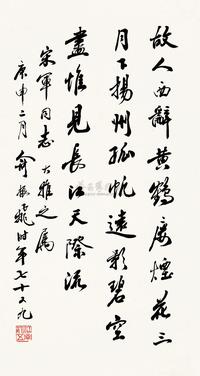 故人西辭黄鶴楼煙花三
月下揚州孤帆遠影碧空
盡惟見長江天際流
宋軍同志大雅之屬
庚申二月俞振飛時年七十又九